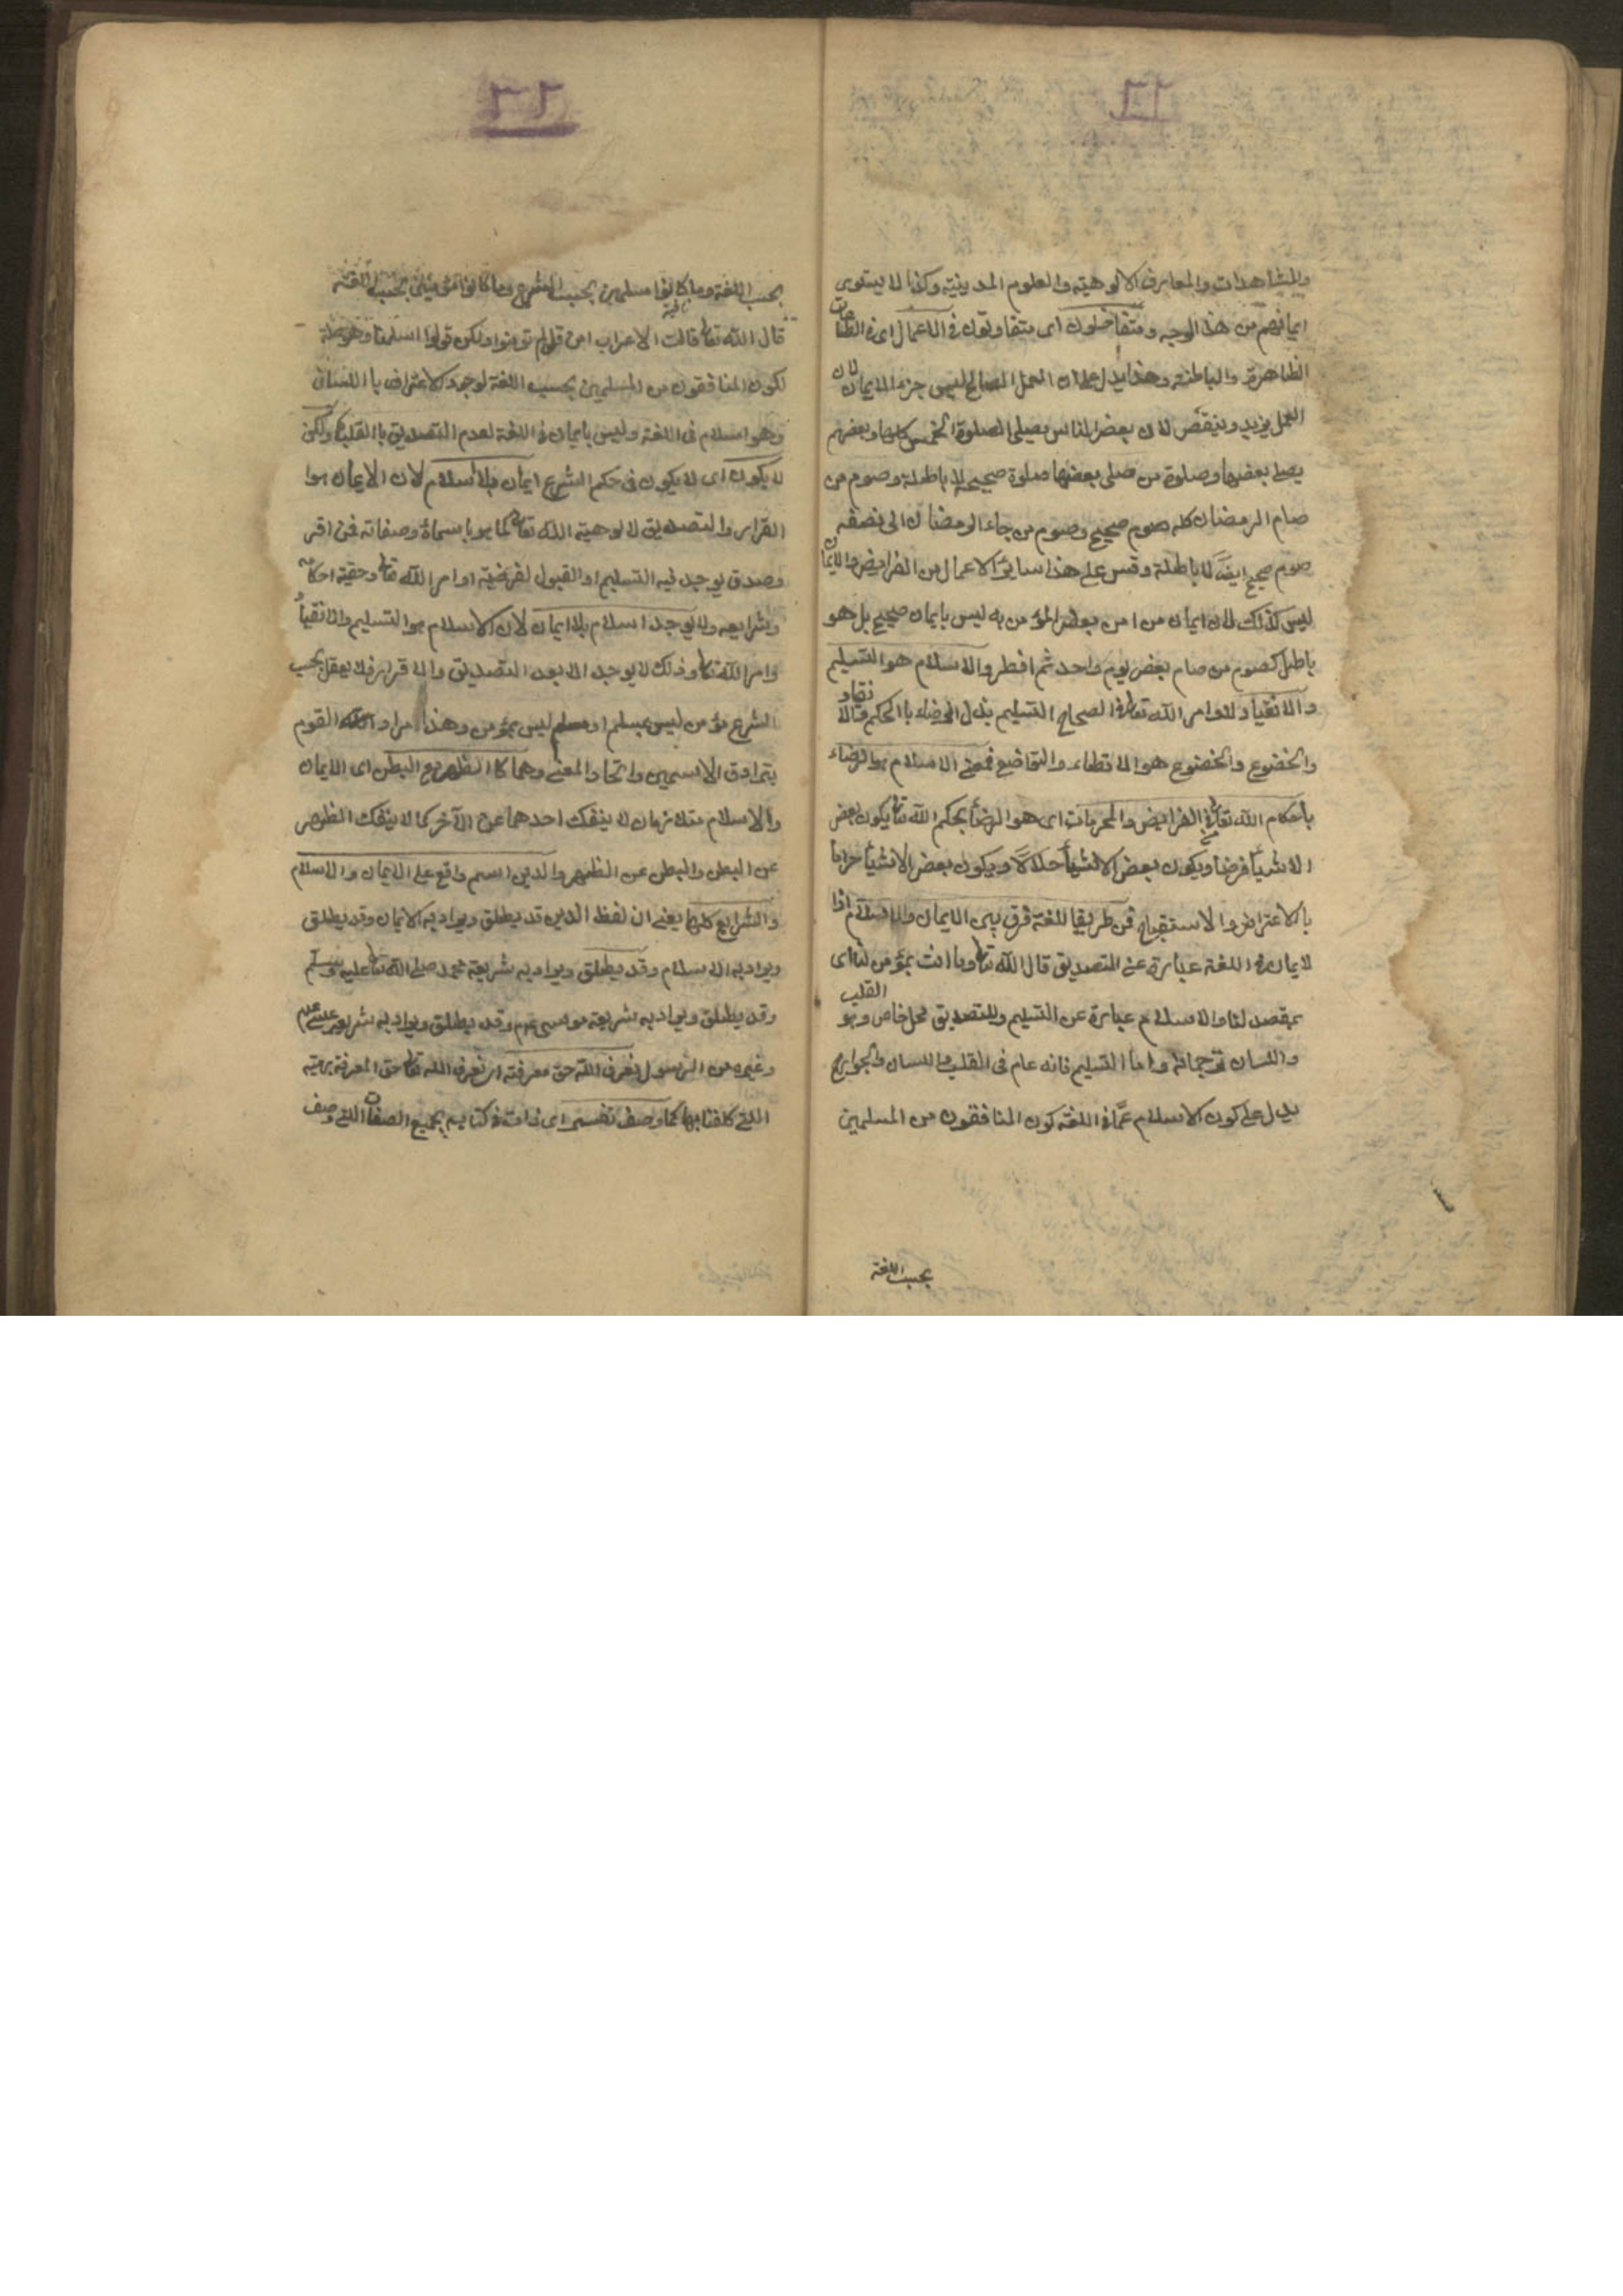 والمشاهدات والمعارف الالوهيته والعلوم المدينية وكذا لا يستوى
ايمانهم من هذا الوجه ومتفاضلون اى متفاوتون فى الاعمال اى فى الطاعات
الظاهرة والباطنة وهذا يدل على ان العمل الصالح ليس جزء الايمان لان
العمل يزيد وينقص لان بعض الناس يصلى الصلوة الخمس كلها وبعضهم
يصلى بعضها وصلوة من صلى بعضها صلوة صحيحة لا باطلة وصوم من
صام الرمضان كله صوم صحيح وصوم من جاء الرمضان الى نصفه
صوم صحيح ايضا لا باطلة وقس على هذا سائر الاعمال من الفرايض والايمان
ليس كذلك لان ايمان من امن ببعض المؤمن به ليس بايمان صحيح بل هو
باطل كصوم من صام بعض يوم واحد ثم افطر والاسلام هو التسليم
والانقياد لاوامر الله تعالى فى الصحاح التسليم بذل الرضاء بالحكم
والخضوع والخضوع هو والتواضع فمعنى الاسلام هو الرضاء
باحكام الله تعالى الفرايض والمحرمات اى هو الرضا بحكم الله تعالى يكون بعض
الاشيا فرضا ويكون بعض الاشيا حلالا ويكون بعض الاشيا حراما
بلا اعتراض والاستقباح فمن طريق اللغة فرق بين الايمان والاسلام اذا
لايمان فى اللغة عبارة عن التصديق قال الله تعالى وما انت بمؤمن لنا اى
بمصدق لنا والاسلام عبارة عن التسليم وللتصديق محل خاص وهو القلب
واللسان ترجمانه واما التسليم فانه عام فى القلب واللسان والجوارح
يدل على كون الاسلام عما فى اللغة كون المنافقون من المسلمين
بحسب اللغة
بحسب اللغة وما كانوا مسلمين بحسب الشرع وما كانوا مؤمنين بحسب اللغة
قال الله تعالى قالت الاعراب امن قل لم تؤمنوا ولكن قولوا اسلمنا وهو
لكون المنافقون من المسلمين بحسب اللغة لوجود الاعتراف باللسان
وهو اسلام فى اللغة وليس بايمان فى اللغة لعدم التصديق بالقلب ولكن
لا يكون اى لا يكون فى حكم الشرع ايمان بلا اسلام لان الايمان هو ا
لقرار والتصديق لالوهية الله تعالى كما هو باسماة وصفاته فمن اقر
وصدق يوجد فيه التسليم او القبول لفرضية اوامر الله تعالى وحقية احكامه
وشرايعه ولا يوجد اسلام بلا ايمان لان الاسلام هو التسليم والانقياد
وامر الله تعالى وذلك لا يوجد الا بعد التصديق والاقرار فلا يعقل بحسب
الشرع مؤمن ليس بمسلم او مسلم ليس بمؤمن وهذا مراد القوم
بترادق الاسمين واتحاد المعنى وهما كا الظهر مع البطن اى الايمان
والاسلام متلازمان لا ينفك احدهما عن الآخر كما لا ينفك الظهر
عن البطن والبطن عن الظهر والدين اسم واقع على الايمان والاسلام
والشرايع كلها يعنى ان لفظ الدين قد يطلق ويراد به الايمان وقد يطلق
ويراد به الاسلام وقد يطلق ويراد به شريعة محمد صلى الله تعالى عليه وسلم
وقد يطلق ويراد به شريعة موسى عم وقد يطلق ويراد به شريعة عيسى عم
وغيره من الرسول نعرف الله حق معرفته اى نعرف الله تعالى حق المعرفة
اللتى كلفنا بها كما وصف نفسه اى ذاته فى كتابه بجميع الصفات اللتى وصف